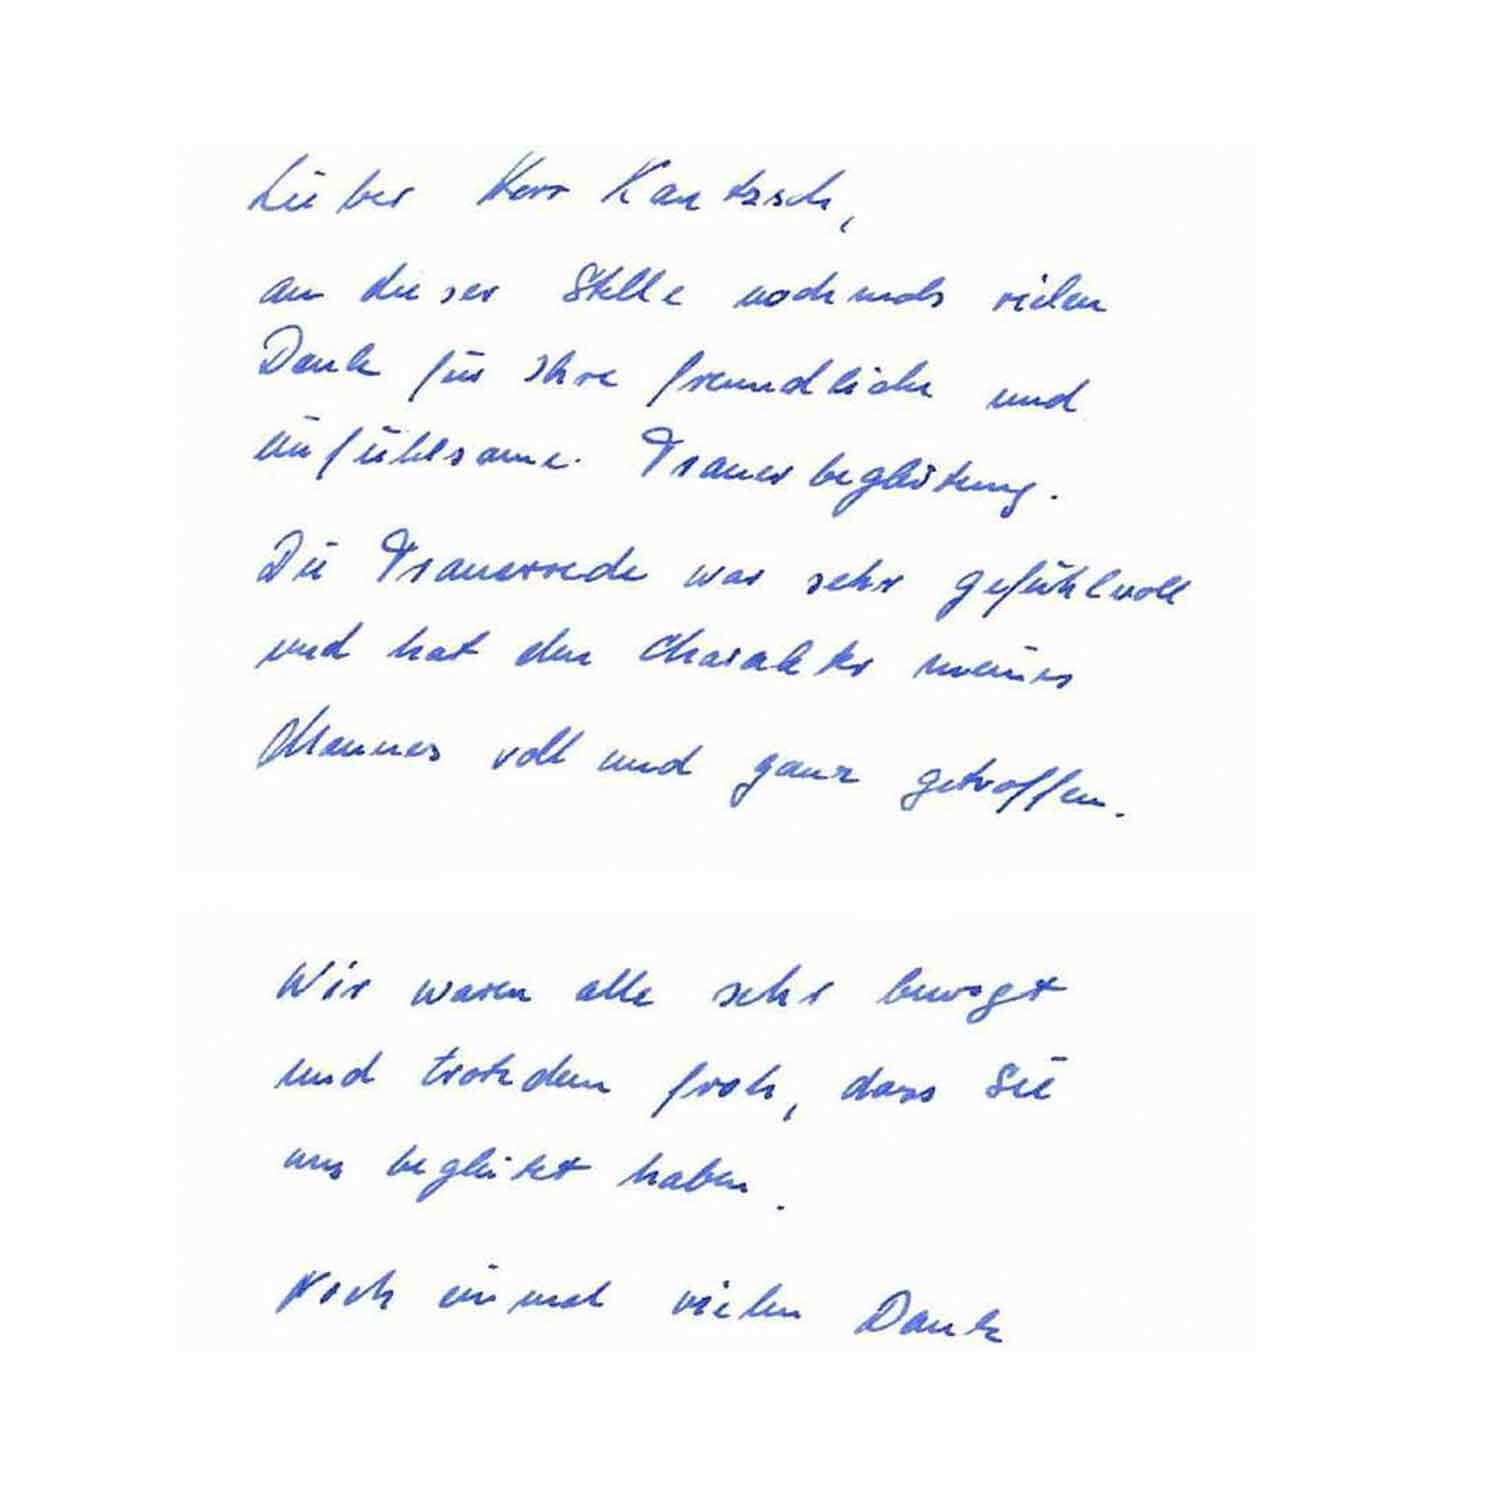 Lieber Herr Kantzsch,
an dieser Stelle nochmals vielen
Dank für Ihre freundliche und
einfühlsame Trauerbegleitung.
Die Trauerrede war sehr gefühlvoll
und hat den Charakter meines
Mannes voll und ganz getroffen.
Wir waren alle sehr bewegt
und trotzdem froh, dass Sie
uns begleitet haben.
Noch einmal vielen Dank